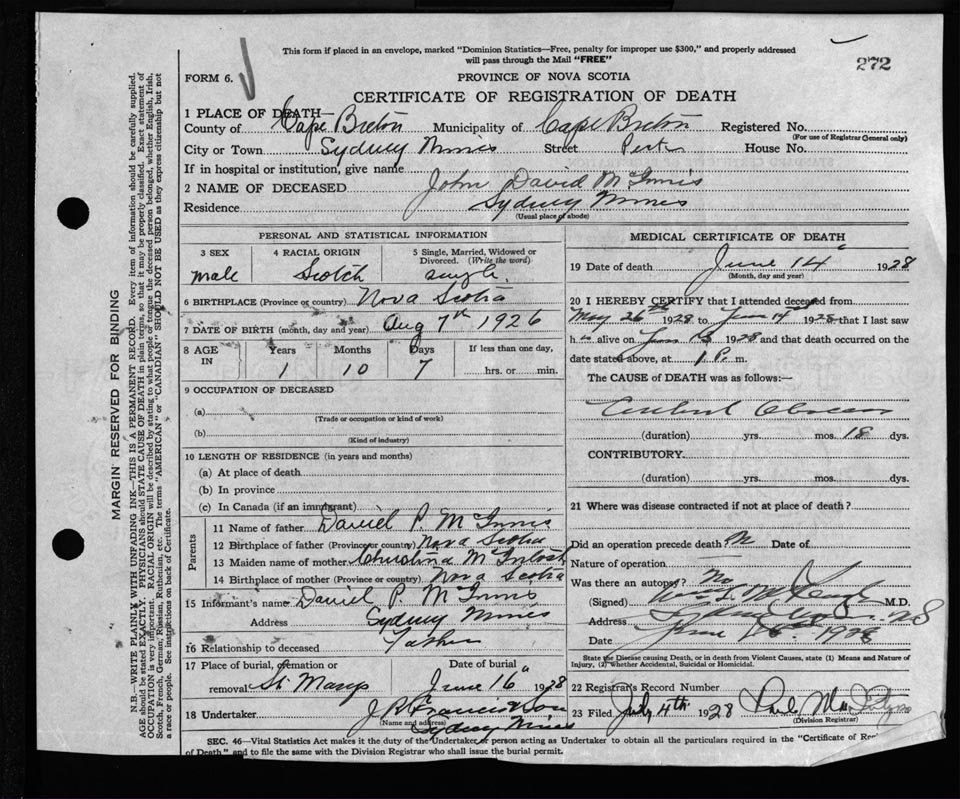 This form if placed in an envelope, marked "Dominion Statistics—Free, penalty for improper use $300," and properly addressed
will pass through the Mail "FREE"
272
FORM 6.
PROVINCE OF NOVA SCOTIA
CERTIFICATE OF REGISTRATION OF DEATH
1 PLACE OF DEATH—
County of Cape Breton Municipality of Cape Breton Registered No.
(For use of Registrar General only)
City or Town Sydney Mines Street House No.
If in hospital or institution, give name
2 NAME OF DECEASED John David McInnis
Residence Sydney Mines
(Usual place of abode)
PERSONAL AND STATISTICAL INFORMATION
3 SEX 4 RACIAL ORIGIN 5 Single, Married, Widowed or
Divorced. (Write the word)
male Scotch single
6 BIRTHPLACE (Province or country) Nova Scotia
7 DATE OF BIRTH (month, day and year) Aug 7th 1926
8 AGE IN Years Months Days If less than one day,
1 10 7 hrs. or min.
9 OCCUPATION OF DECEASED
(a)
(Trade or occupation or kind of work)
(b)
(Kind of industry)
10 LENGTH OF RESIDENCE (in years and months)
(a) At place of death
(b) In province
(c) In Canada (if an immigrant)
Parents
11 Name of father Daniel P. McInnis
12 Birthplace of father (Province or country) Nova Scotia
13 Maiden name of mother Christina McIntosh
14 Birthplace of mother (Province or country) Nova Scotia
15 Informant's name Daniel P. McInnis
Address Sydney Mines
16 Relationship to deceased Father
17 Place of burial, cremation or Date of burial
removal St Marys June 16" 1928
18 Undertaker J R Francis & Son
(Name and address)
Sydney Mines
MEDICAL CERTIFICATE OF DEATH
19 Date of death June 14" 1928
(Month, day and year)
20 I HEREBY CERTIFY that I attended deceased from
May 26th 1928 to June 14th 1928 that I last saw
h is alive on June 13 1928 and that death occurred on the
date stated above, at 1 P. m.
The CAUSE of DEATH was as follows:—
Cerebral Abscess
(duration) yrs. mos. 18 dys.
CONTRIBUTORY.
(duration) yrs. mos. dys.
21 Where was disease contracted if not at place of death?
Did an operation precede death? Date of
Nature of operation
Was there an autopsy? No
(Signed) M.D.
Address
Date June 1928
State the Disease causing Death, or in death from Violent Causes, state (1) Means and Nature of
Injury, (2) Whether Accidental, Suicidal or Homicidal.
22 Registrar's Record Number
23 Filed July 4th 1928
(Division Registrar)
SEC. 46—Vital Statistics Act makes it the duty of the Undertaker or person acting as Undertaker to obtain all the particulars required in the "Certificate of
of Death" and to file the same with the Division Registrar who shall issue the burial permit.
MARGIN RESERVED FOR BINDING
N.B.—WRITE PLAINLY WITH UNFADING INK—THIS IS A PERMANENT RECORD. Every item of information should be carefully supplied.
AGE should be stated EXACTLY. PHYSICIANS should STATE CAUSE OF DEATH in plain terms, so that it may be properly classified. Exact statement of
OCCUPATION is very important. RACIAL ORIGIN will be described by stating to what people or tongue the deceased person belonged, whether English, Irish,
Scotch, French, German, Russian, Ruthenian, etc. The terms "AMERICAN" or "CANADIAN" SHOULD NOT BE USED as they express citizenship but not
a race or people. See instructions on back of Certificate.